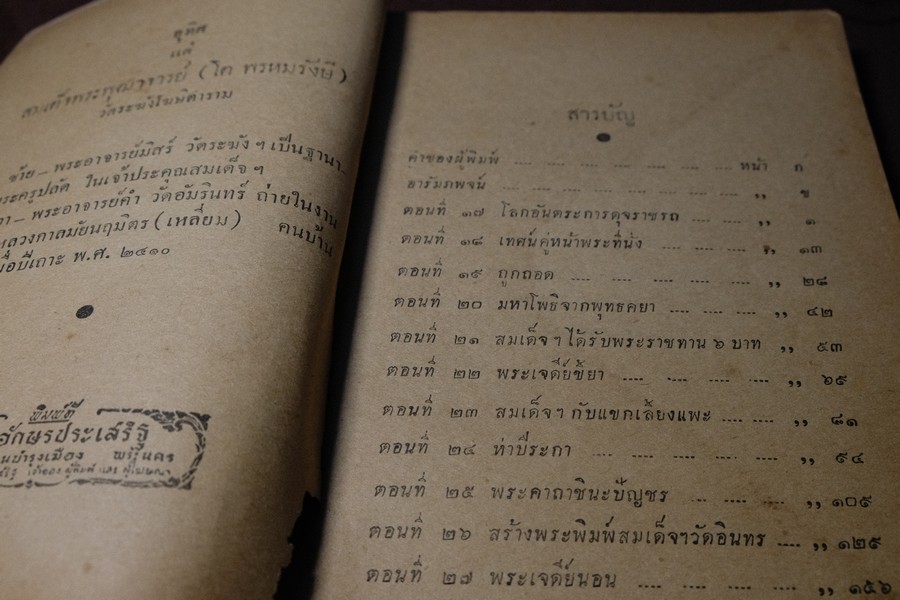 อุทิศ
แด่
สมเด็จพระพุฒาจารย์ (โต พรหมรังษี)
วัดระฆังโฆษิตาราม
ซ้าย – พระอาจารย์มิสร์ วัดระฆัง ฯ เป็นฐานา
พระครูปลัด ในเจ้าประคุณสมเด็จ ฯ
– พระอาจารย์คำ วัดอัมรินทร์ ถ่ายในงาน
หลวงกาลมัยนฤมิตร (เหลี่ยม) คนบ้าน
พ.ศ. ๒๔๑๐
พิมพ์ที่
อักษรประเสริฐ
บำรุงเมือง พระนคร
เจ้าของ ผู้พิมพ์ และ ผู้โฆษณา
สารบัญ
คำของผู้พิมพ์ .... .... .... .... .... .... หน้า ก
อารัมภพจน์ .... .... .... .... .... .... ,, ข
ตอนที่ ๑๗ โลกอันตระการดุจราชรถ .... .... ,, ๑
ตอนที่ ๑๘ เทศน์คู่หน้าพระที่นั่ง .... .... .... ,, ๑๓
ตอนที่ ๑๙ ถูกถอด .... .... .... .... ,, ๒๘
ตอนที่ ๒๐ มหาโพธิจากพุทธคยา .... .... .... ,, ๔๒
ตอนที่ ๒๑ สมเด็จ ฯ ได้รับพระราชทาน ๖ บาท ,, ๕๓
ตอนที่ ๒๒ พระเจดีย์ชัยา .... .... .... .... ,, ๖๙
ตอนที่ ๒๓ สมเด็จ ฯ กับแขกเลี้ยงแพะ .... .... ,, ๘๑
ตอนที่ ๒๔ ห่าปีระกา .... .... .... .... ,, ๙๔
ตอนที่ ๒๕ พระคาถาชินะบัญชร .... .... .... ,, ๑๐๙
ตอนที่ ๒๖ สร้างพระพิมพ์สมเด็จฯวัดอินทร .... ,, ๑๒๙
ตอนที่ ๒๗ พระเจดีย์นอน .... .... .... .... ,, ๑๕๖